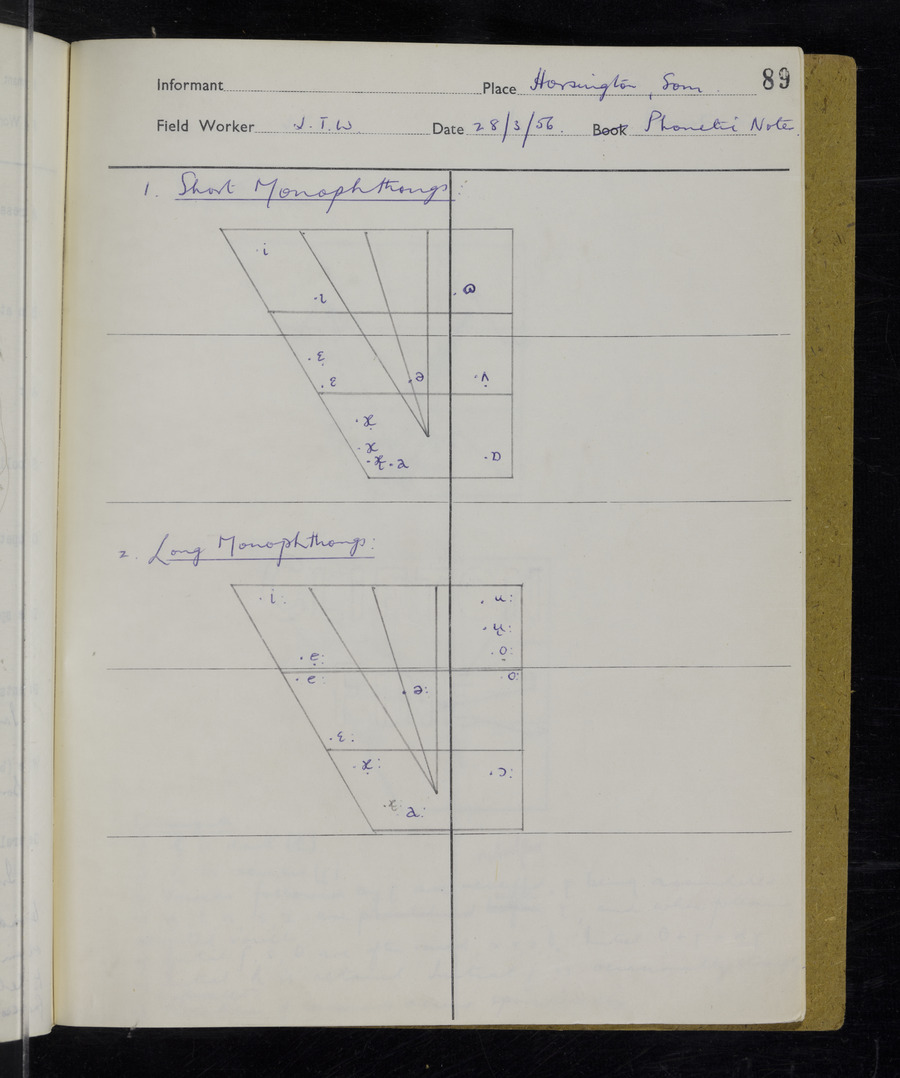 Informant Place Horsington, Som. 89
Field Worker J.T.W. Date 28/3/56. Book Phonetic Note
1. Short Monophthongs:
i
ɩ ɷ
ɛ̣
ɛ ə ʌ̣
æ̣
æ
æ̞ a ɒ
2. Long Monophthongs:
i: u:
ụ:
ẹ: ọ:
e: o:
ə:
ɛ:
æ̣: ɔ:
æ: a: